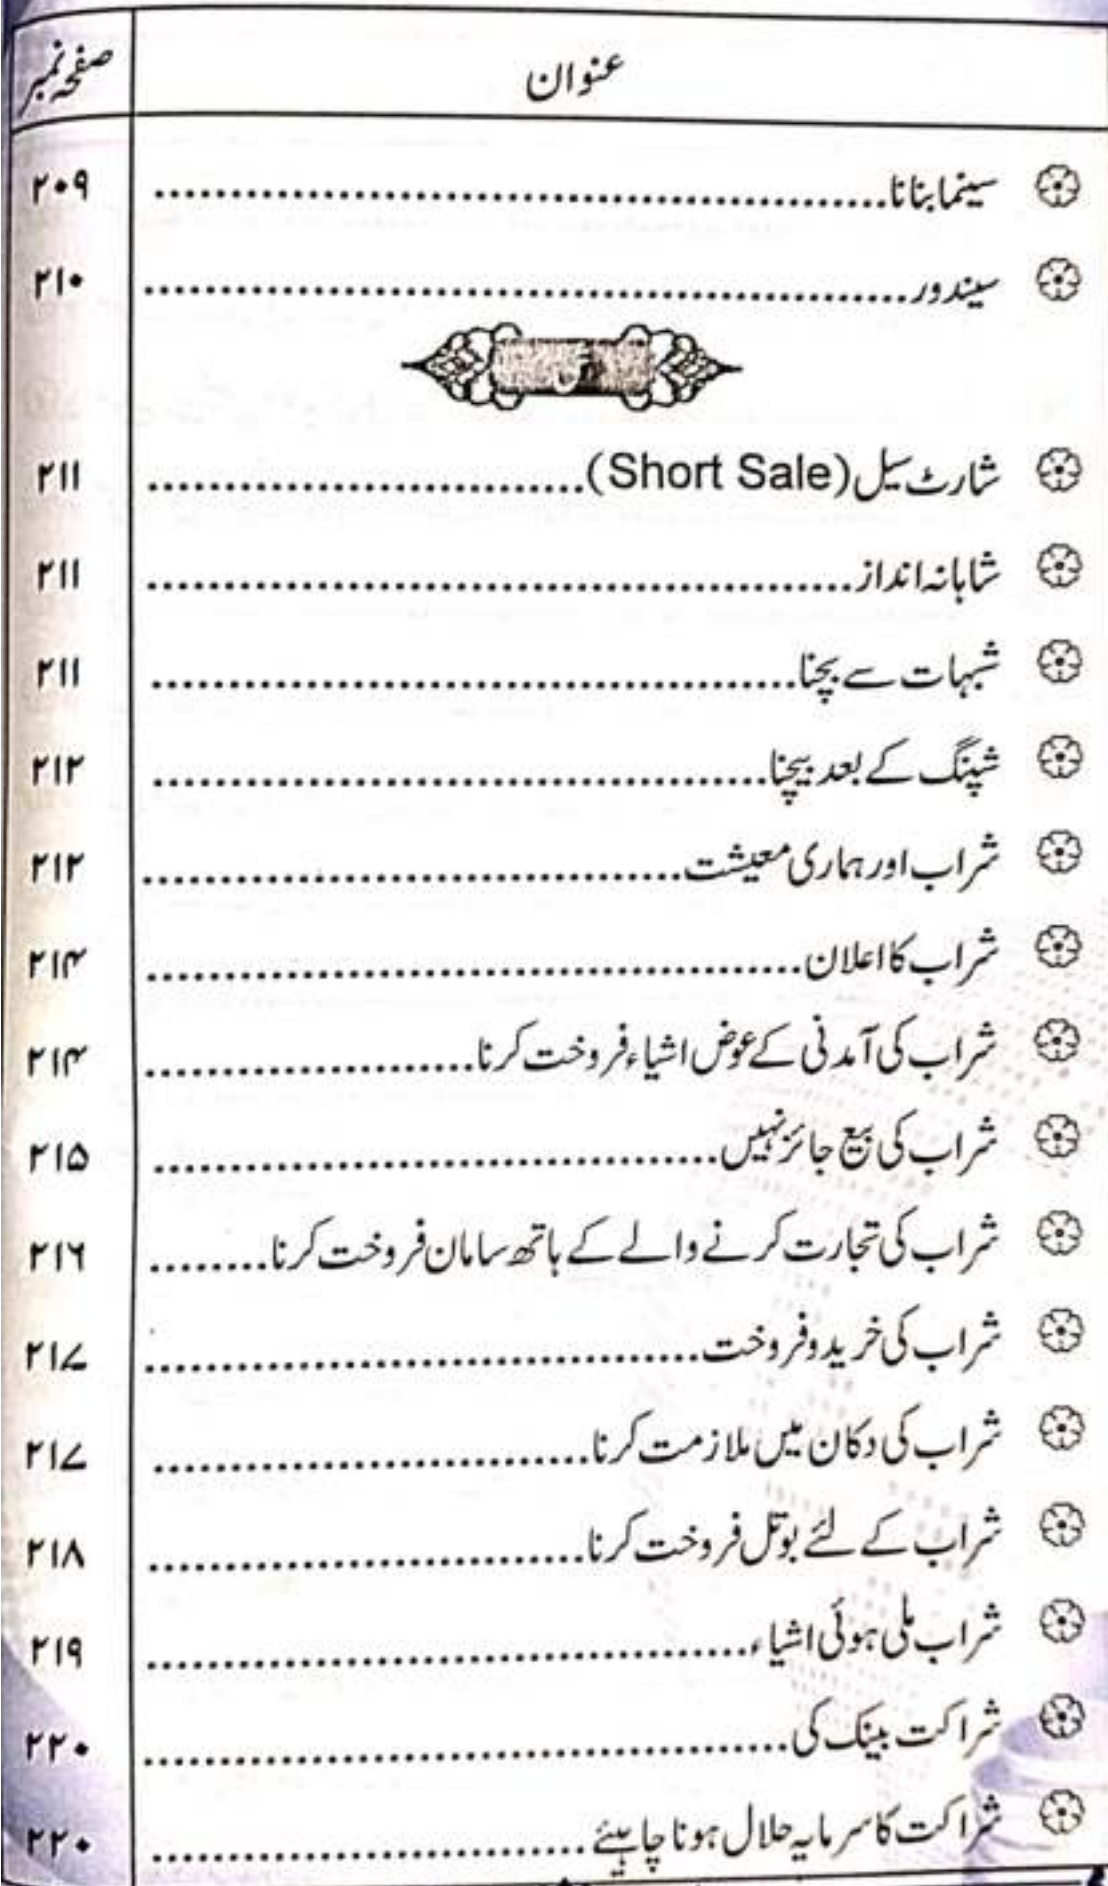 عنوان صفحہ نمبر
سینما بنانا ................ ۲۰۹
سیندور ................ ۲۱۰
ش
شارٹ سیل (Short Sale) ................ ۲۱۱
شاہانہ انداز ................ ۲۱۱
شبہات سے بچنا ................ ۲۱۱
شپنگ کے بعد بیچنا ................ ۲۱۲
شراب اور ہماری معیشت ................ ۲۱۲
شراب کا اعلان ................ ۲۱۴
شراب کی آمدنی کے عوض اشیاء فروخت کرنا ................ ۲۱۴
شراب کی بیع جائز نہیں ................ ۲۱۵
شراب کی تجارت کرنے والے کے ہاتھ سامان فروخت کرنا ........ ۲۱۶
شراب کی خرید و فروخت ................ ۲۱۷
شراب کی دکان میں ملازمت کرنا ................ ۲۱۷
شراب کے لئے بوتل فروخت کرنا ................ ۲۱۸
شراب ملی ہوئی اشیاء ................ ۲۱۹
شراکت بینک کی ................ ۲۲۰
شراکت کا سرمایہ حلال ہونا چاہیئے ................ ۲۲۰